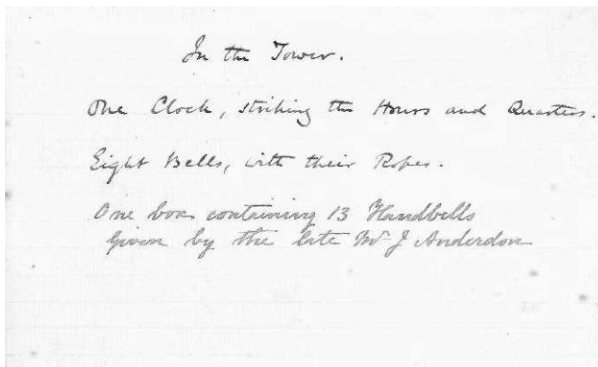 In the Tower.
One Clock, striking the Hours and Quarters.
Eight Bells, with their Ropes.
One box containing 13 Handbells
Given by the late Mr J Anderdon